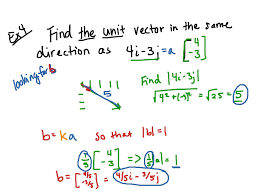 Ex 4 Find the unit vector in the same
direction as 4i-3j = a [4 -3]
looking for b
5
Find |4i-3j|
√4²+(-3)² = √25 = 5
b = ka so that |b| = 1
1/5 [4 -3] => 1/5 |a| = 1
b = [4/5 -3/5] = 4/5i - 3/5j